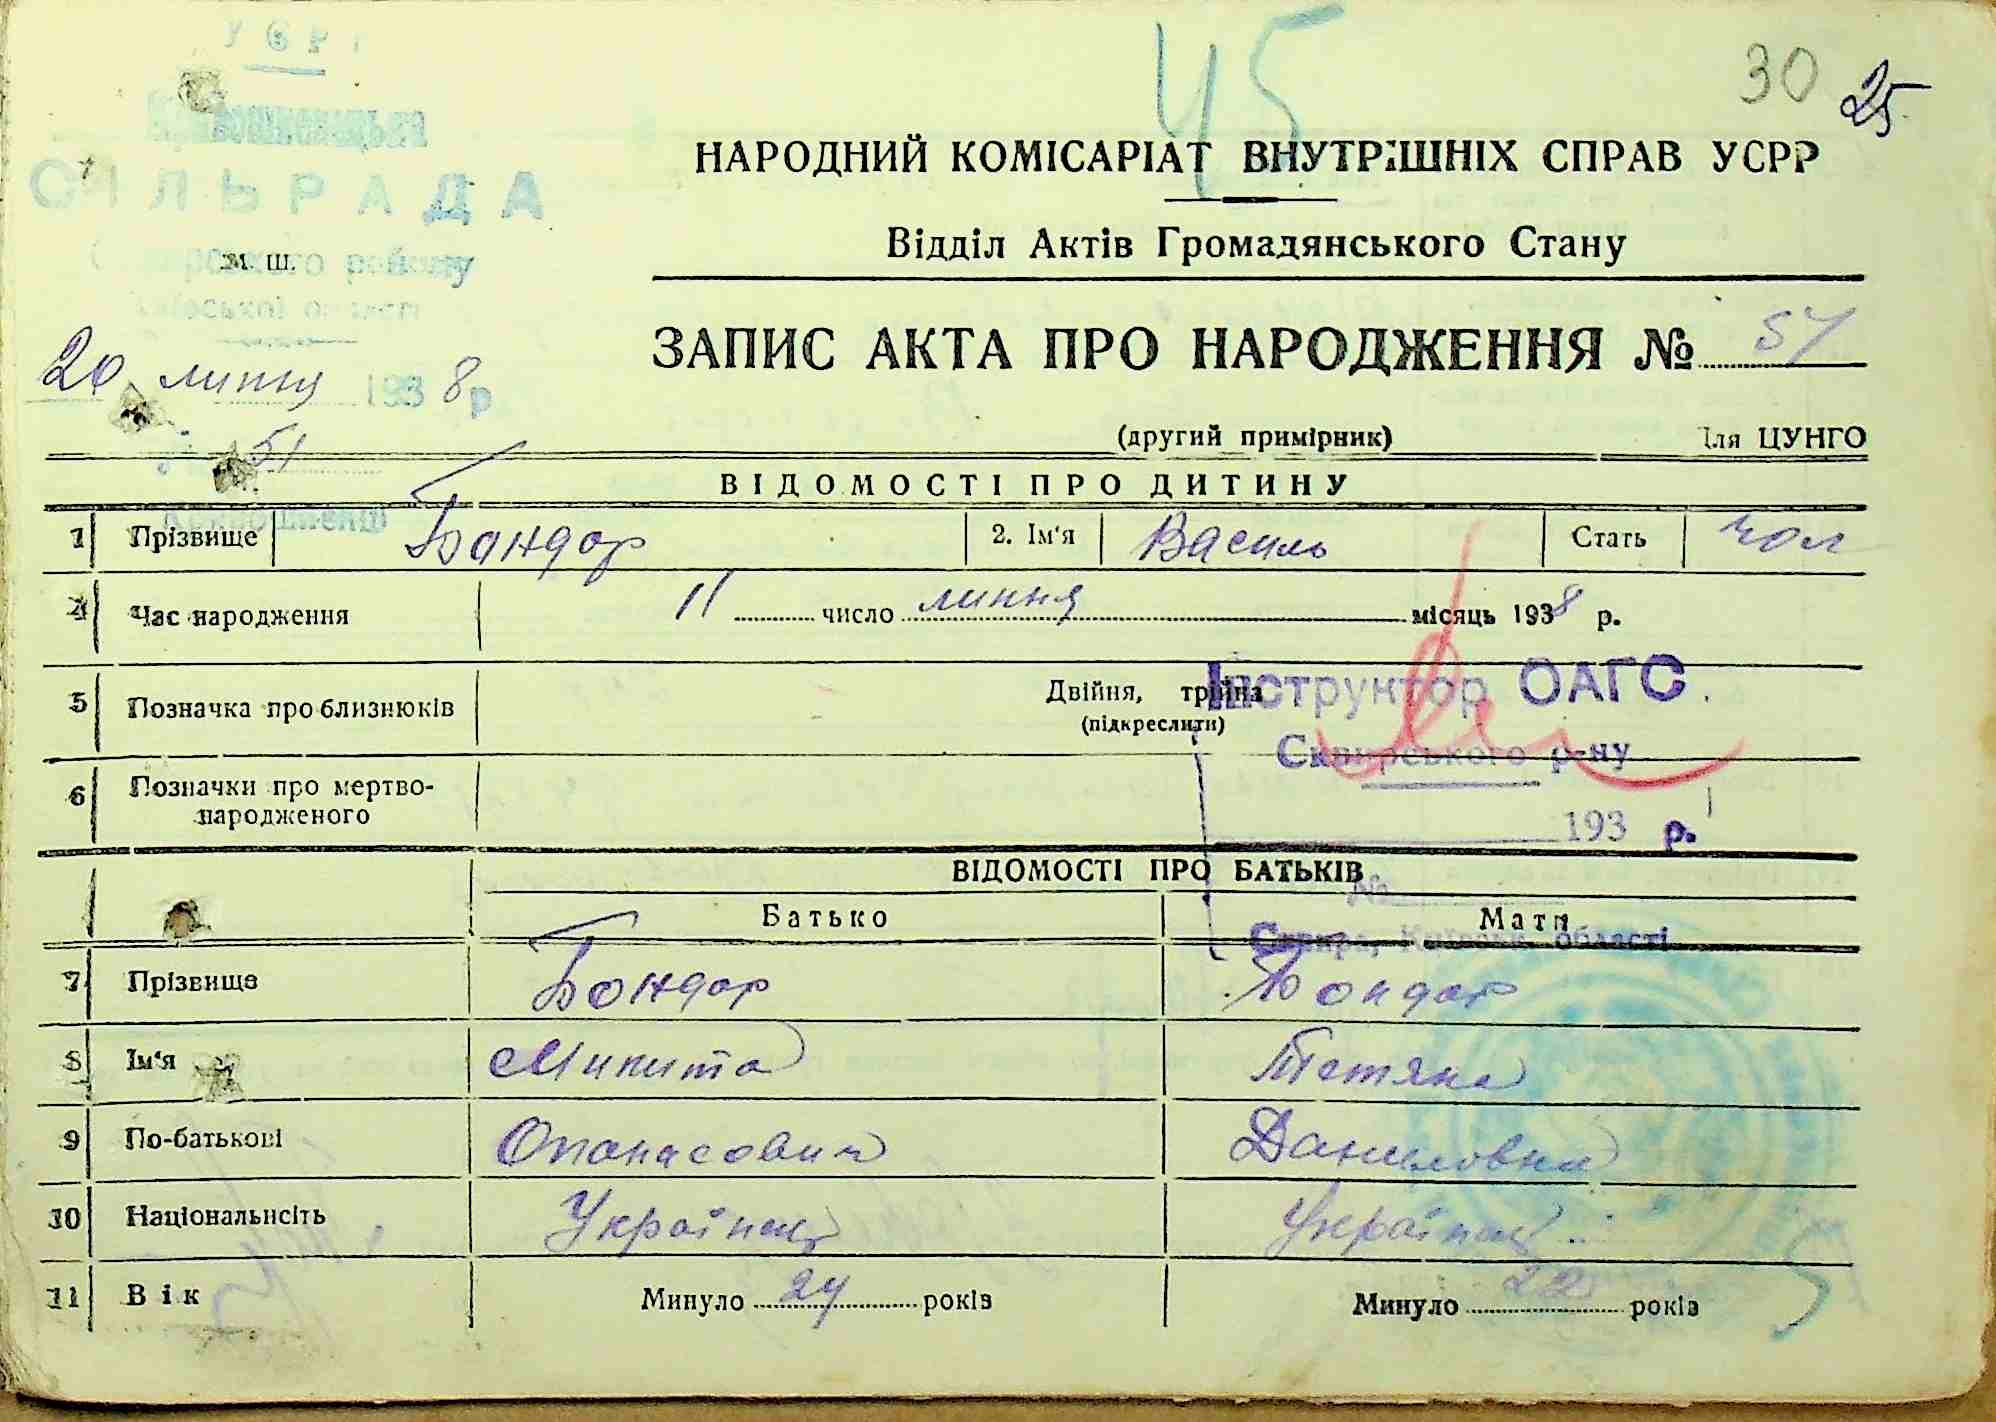 УСРР
СІЛЬРАДА
району
М. Ш.
20 липня 1938 р
51
45
30 25
НАРОДНИЙ КОМІСАРІАТ ВНУТРІШНІХ СПРАВ УСРР
Відділ Актів Громадянського Стану
ЗАПИС АКТА ПРО НАРОДЖЕННЯ №
(другий примірник) Для ЦУНГО
ВІДОМОСТІ ПРО ДИТИНУ
1 Прізвище Бондар 2. Ім'я Василь Стать чол
4 Час народження 11 число липня місяць 1938 р.
5 Позначка про близнюків Двійня, трійна
(підкреслити)
Інструктор ОАГС
Сквирського р-ну
6 Позначки про мертво-
народженого
193 р.
№
Сквира, Київськ. області
ВІДОМОСТІ ПРО БАТЬКІВ
Батько Мати
7 Прізвище Бондар Бондар
8 Ім'я Микита Тетяна
9 По-батькові Опанасович Даниловна
10 Національнсіть Українец Українец
11 Вік Минуло 24 років Минуло 22 років